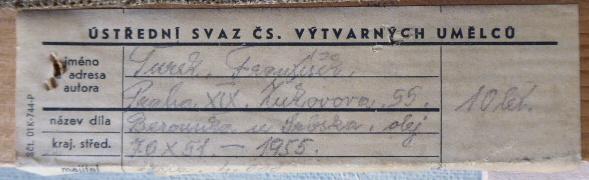 ÚSTŘEDNÍ SVAZ ČS. VÝTVARNÝCH UMĚLCŮ
jméno
adresa
autora
Turek, František,
Praha XIX, Žukovova, 55.
10 let.
název díla Berounka u Srbska, olej
kraj. střed. 70 x 51. — 1955.
majitel
Sčt. 01K-744-P